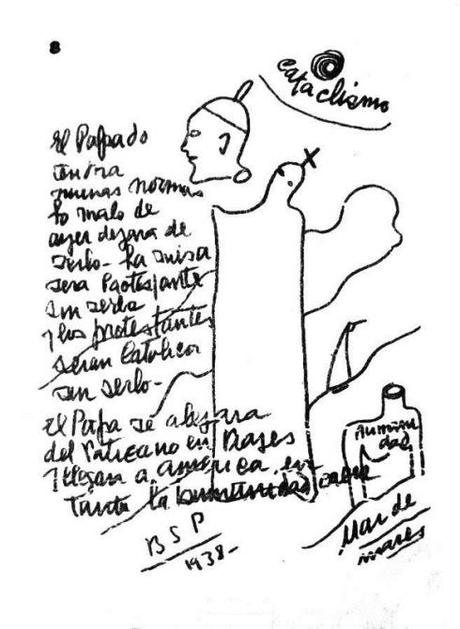 8
Cataclismo
El Papado
tendra
nuevas normas
lo malo de
ayer dejara de
serlo - La misa
sera Protestante
sin serlo
y los protestantes
seran Catolicos
sin serlo -
El Papa se alejara
del Vaticano en viajes
y llegara a America, en
tanto la humanidad caera
BSP
1938 -
Humani
dad
Mar de
mares